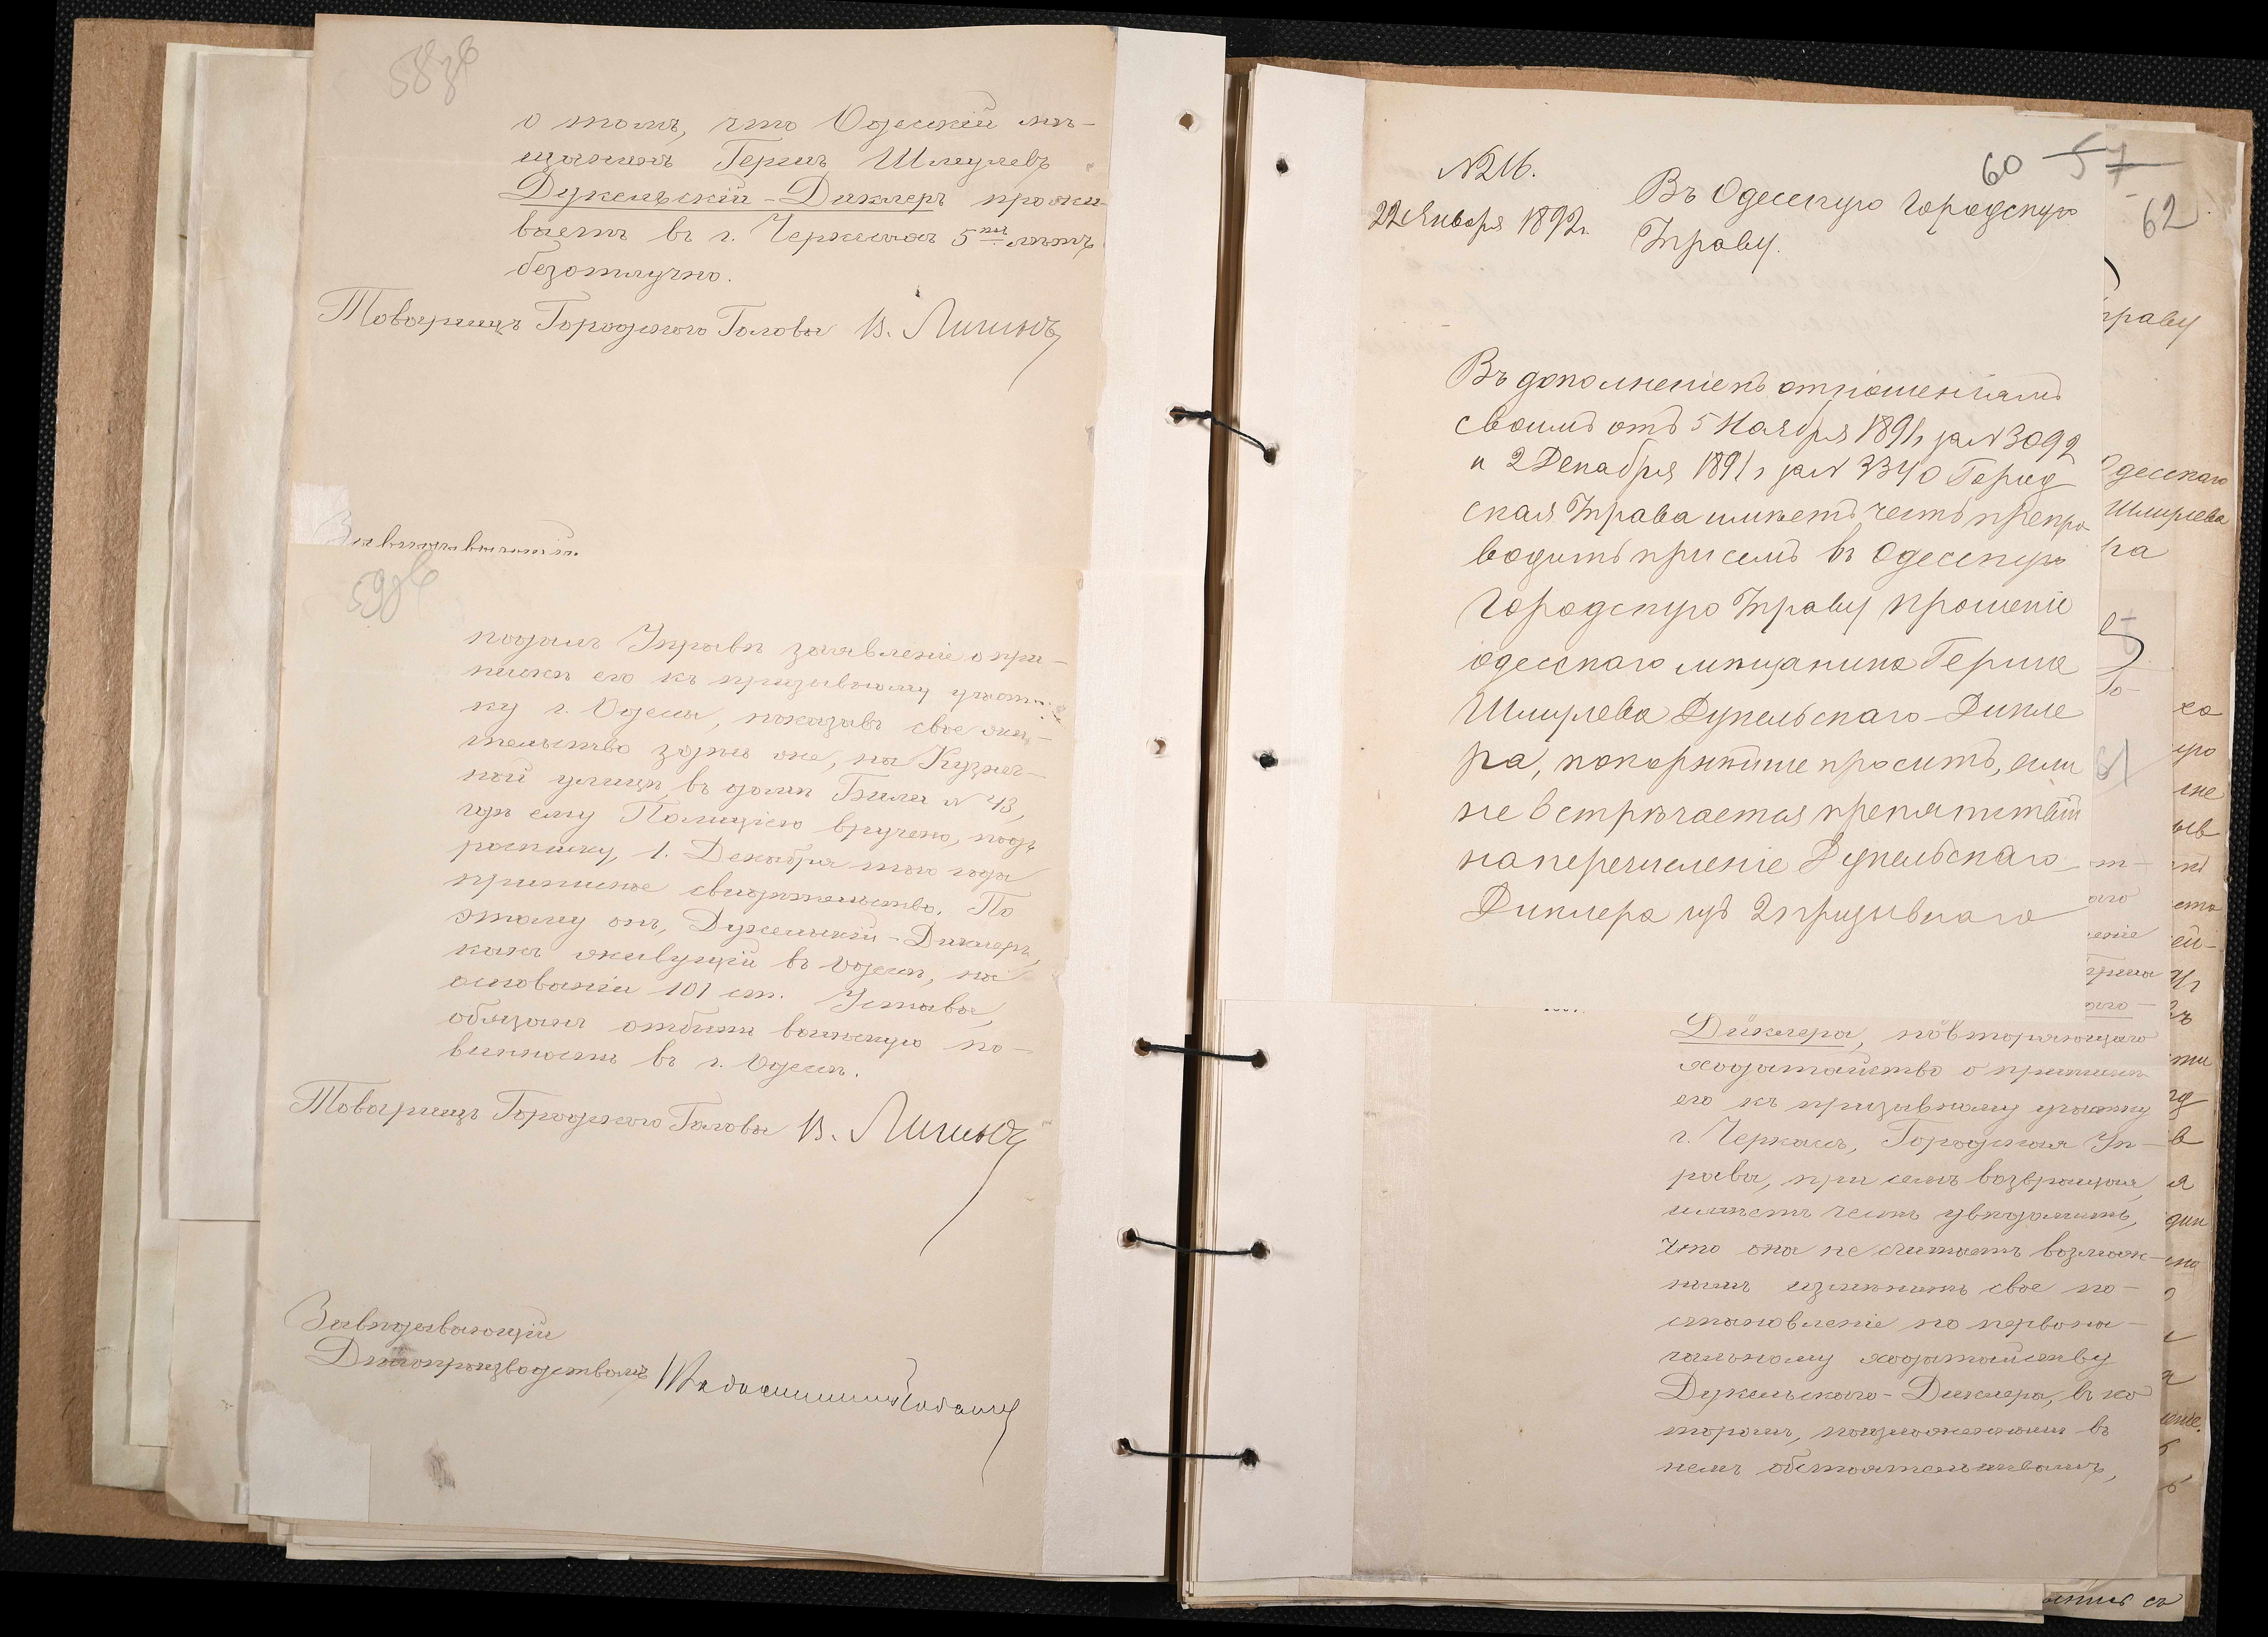 58об
о томъ, что Одесскій мѣ-
щанинъ Гершъ Шмулевъ
Дукельскій-Диклеръ прожи-
ваетъ въ г. Черкасахъ 5ть лѣтъ
безотлучно.
Товарищъ Городского Головы В. Лигинъ
Завѣдывающій
59об
подалъ Управѣ заявленіе о при-
пискѣ его къ призывному участ-
ку г. Одессы, показавъ свое жи-
тельство здѣсь же, на Кузнеч-
ной улицѣ, въ домѣ Било № 43,
гдѣ ему Полиціею вручено, подъ
росписку, 1. Декабря того года
приписное свидѣтельство. По
этому онъ, Дукельскій-Диклеръ,
какъ живущій въ Одессѣ, на
основаніи 101 ст. Устава,
обязанъ отбыть воинскую по-
винность въ г. Одессѣ.
Товарищъ Городского Головы В. Лигинъ
Завѣдывающій
Дѣлопроизводствомъ
№216.
22 Января 1892г.
60 57
62
Въ Одесскую Городскую
Управу.
Въ дополненіе къ отношеніямъ
своимъ отъ 5 Ноября 1891г за№3092
и 2 Декабря 1891г за№ 3340 Город
ская Управа имѣетъ честь препро
водить при семъ въ Одесскую
Городскую Управу прошеніе
одесскаго мѣщанина Герша
Шмулева Дукельскаго-Дикле
ра, покорнѣйше просить, если
не встрѣчается препятствій
на перечисленіе Дукельскаго-
Диклера изъ 2 призывнаго
Диклера, повторяющаго
ходатайство о припискѣ
его къ призывному участку
г. Черкасъ, Городская Уп-
рава, при семъ возвращая,
имѣетъ честь увѣдомить,
что она не считаетъ возмож-
нымъ измѣнить свое по-
становленіе по первона-
чальному ходатайству
Дукельскаго-Диклера, въ ко
торомъ, по изложеннымъ въ
немъ обстоятельствамъ,
праву
Одесскаго
Шмулева
ра
61